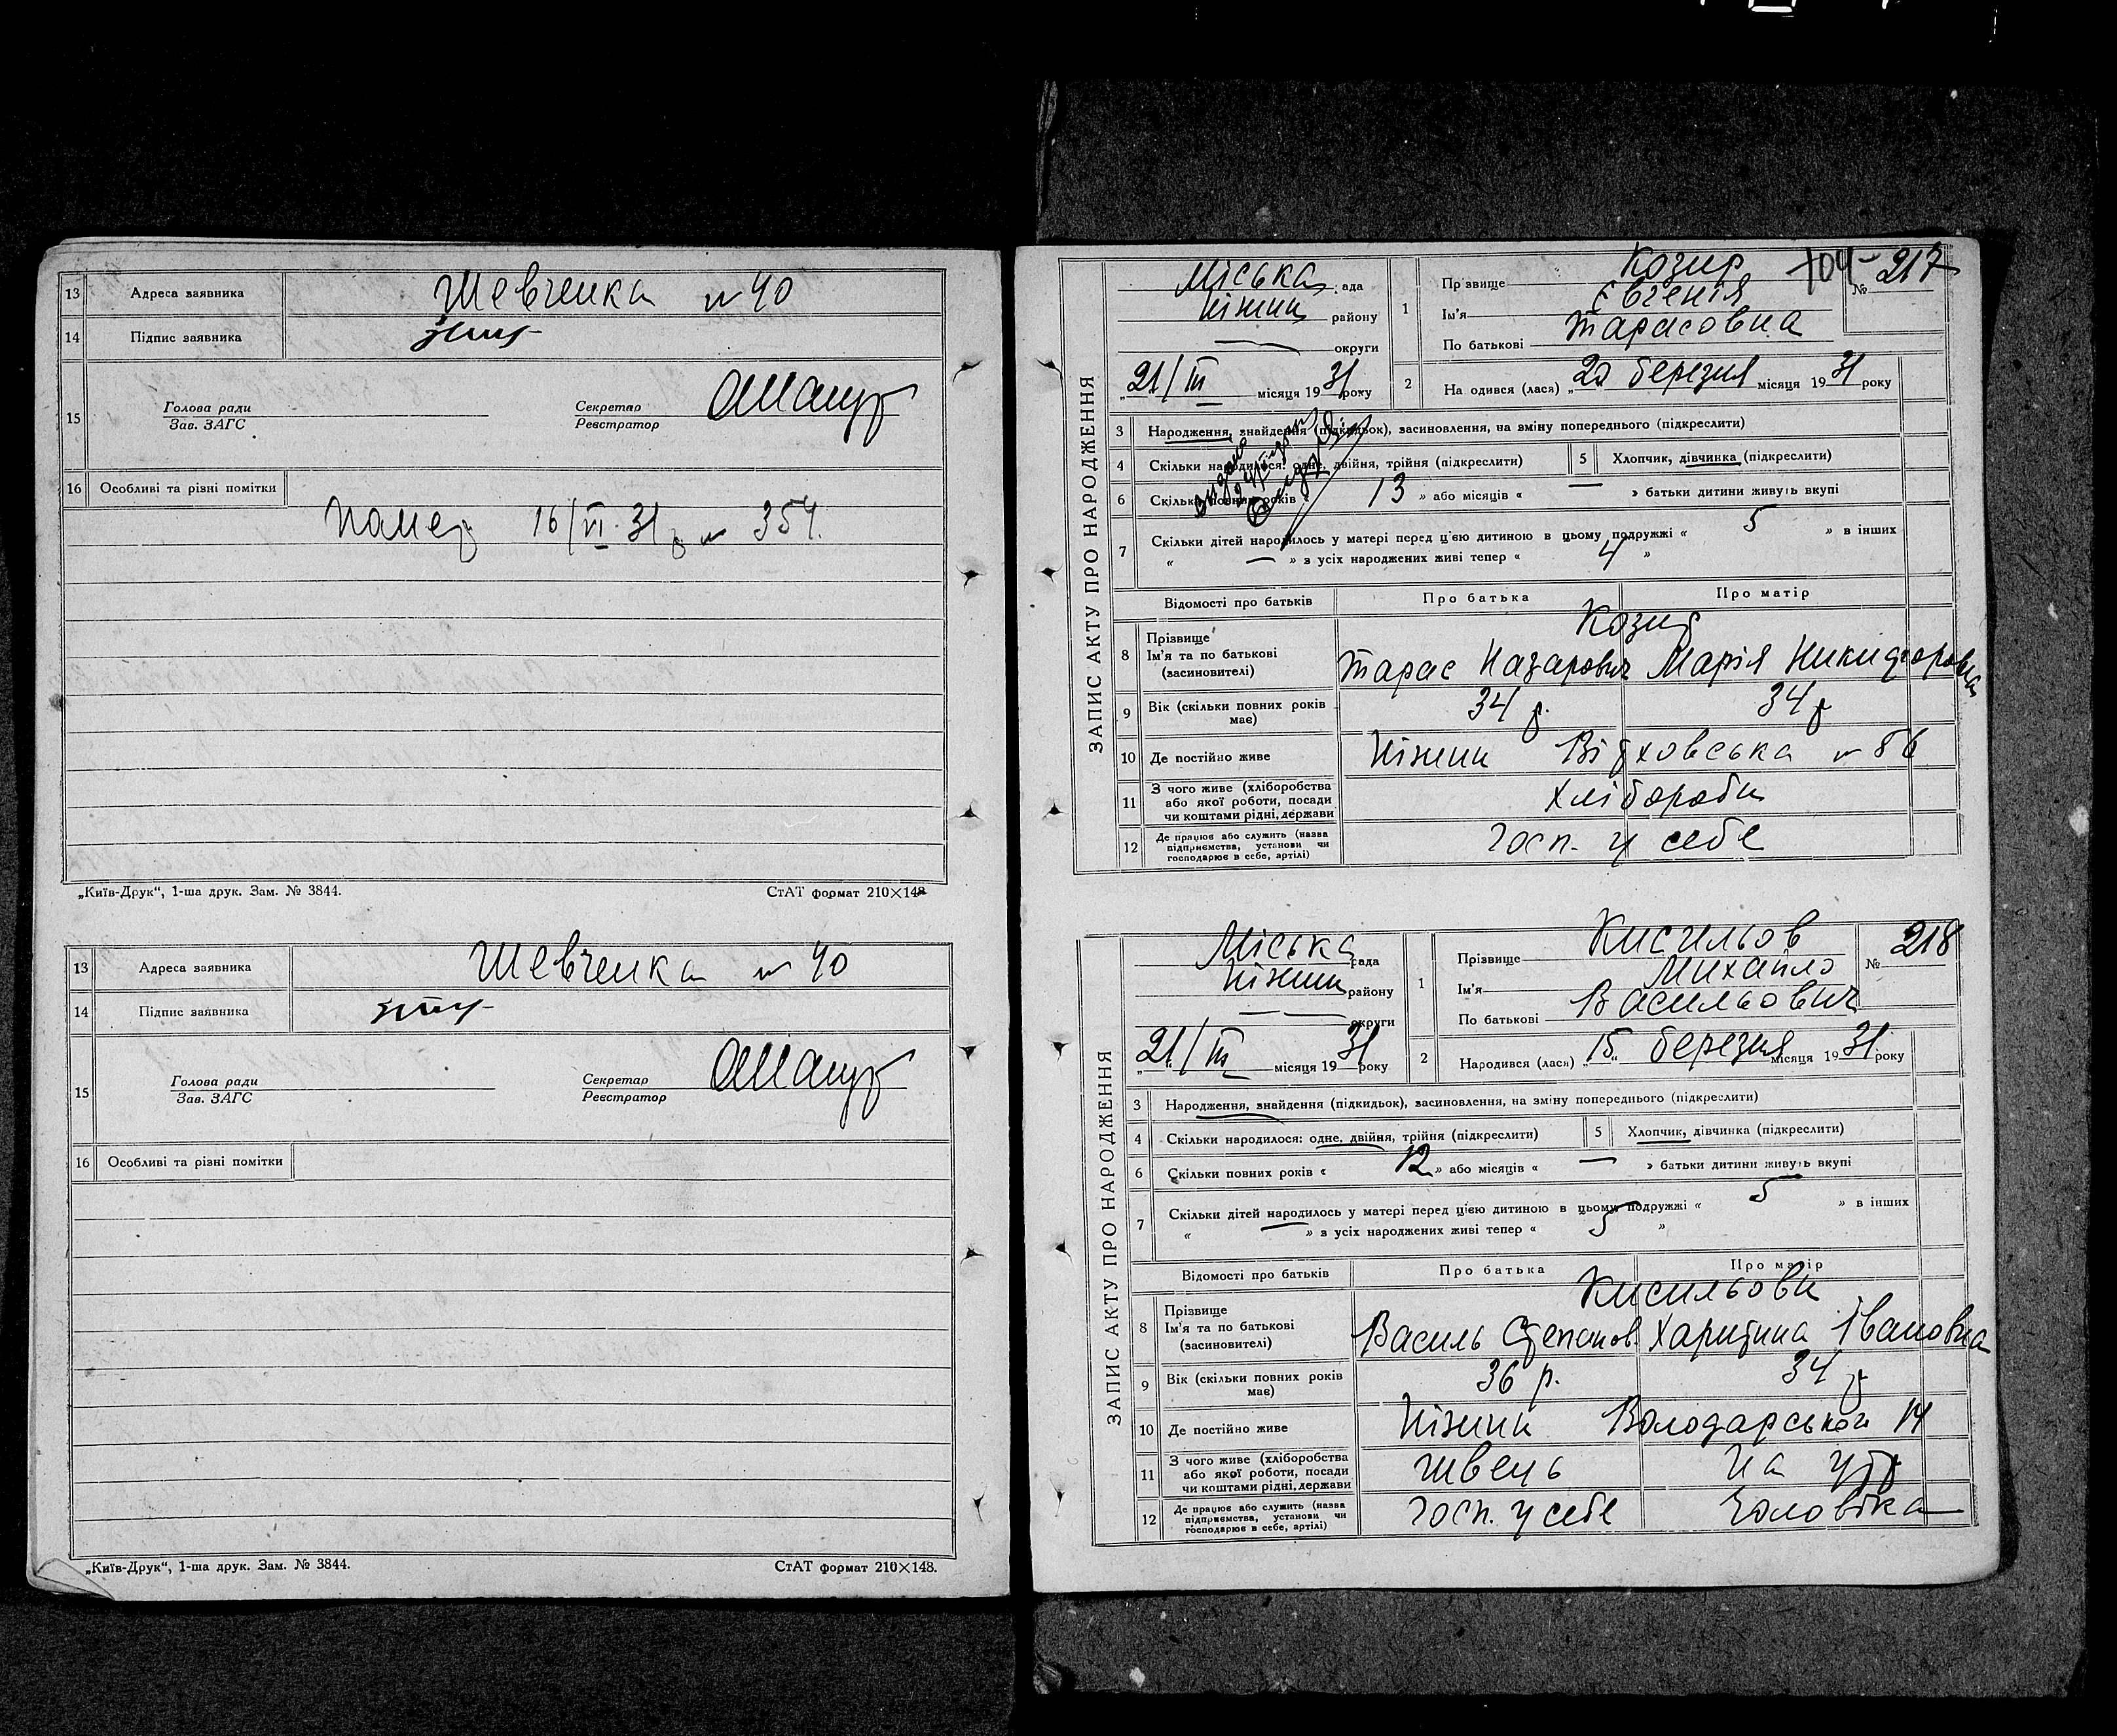 13 Адреса заявника Шевченка № 40
14 Підпис заявника
15 Голова ради Секретар
Зав. ЗАГС Реєстратор
16 Особливі та різні помітки
Помер 16/VI 31 р № 354.
„Київ-Друк“, 1-ша друк. Зам. № 3844. СтАТ формат 210×148
13 Адреса заявника Шевченка № 40
14 Підпис заявника
15 Голова ради Секретар
Зав. ЗАГС Реєстратор
16 Особливі та різні помітки
„Київ-Друк“, 1-ша друк. Зам. № 3844. СтАТ формат 210×148.
ЗАПИС АКТУ ПРО НАРОДЖЕННЯ
Міська рада
Ніжин району
округи
„21/III місяця 1931 року
1 Прізвище Козир № 217
Ім'я Євгенія
По батькові Тарасовна
2 Народився (лася) „20 березня місяця 1931 року
3 Народження, знайдення (підкидьок), засиновлення, на зміну попереднього (підкреслити)
4 Скільки народилося: одне, двійня, трійня (підкреслити) 5 Хлопчик, дівчинка (підкреслити)
6 Скільки повних років « 13 » або місяців « — » батьки дитини живуть вкупі
7 Скільки дітей народилось у матері перед цією дитиною в цьому подружжі « 5 » в інших
« — » з усіх народжених живі тепер « 4 »
Відомості про батьків Про батька Про матір
8 Прізвище Козир
Ім'я та по батькові Тарас Назарович Марія Никифоровна
(засиновителі)
9 Вік (скільки повних років має) 34 р. 34 р
10 Де постійно живе Ніжин № 86
11 З чого живе (хліборобства Хлібороби
або якої роботи, посади
чи коштами рідні, держави
12 Де працює або служить (назва Госп. у себе
підприємства, установи чи
господарює в себе, артілі)
ЗАПИС АКТУ ПРО НАРОДЖЕННЯ
Міська рада
Ніжин району
округи
„21/III місяця 1931 року
1 Прізвище Кисильов № 218
Ім'я Михайло
По батькові Васильович
2 Народився (лася) „15 березня місяця 1931 року
3 Народження, знайдення (підкидьок), засиновлення, на зміну попереднього (підкреслити)
4 Скільки народилося: одне, двійня, трійня (підкреслити) 5 Хлопчик, дівчинка (підкреслити)
6 Скільки повних років « 12 » або місяців « — » батьки дитини живуть вкупі
7 Скільки дітей народилось у матері перед цією дитиною в цьому подружжі « 5 » в інших
« — » з усіх народжених живі тепер « 5 »
Відомості про батьків Про батька Про матір
8 Прізвище Кисильови
Ім'я та по батькові Василь Степанов. Харитина Івановна
(засиновителі)
9 Вік (скільки повних років має) 36 р. 34 р
10 Де постійно живе Ніжин Володарської 14
11 З чого живе (хліборобства Швець На утр
або якої роботи, посади
чи коштами рідні, держави
12 Де працює або служить (назва Госп. у себе Чоловіка
підприємства, установи чи
господарює в себе, артілі)